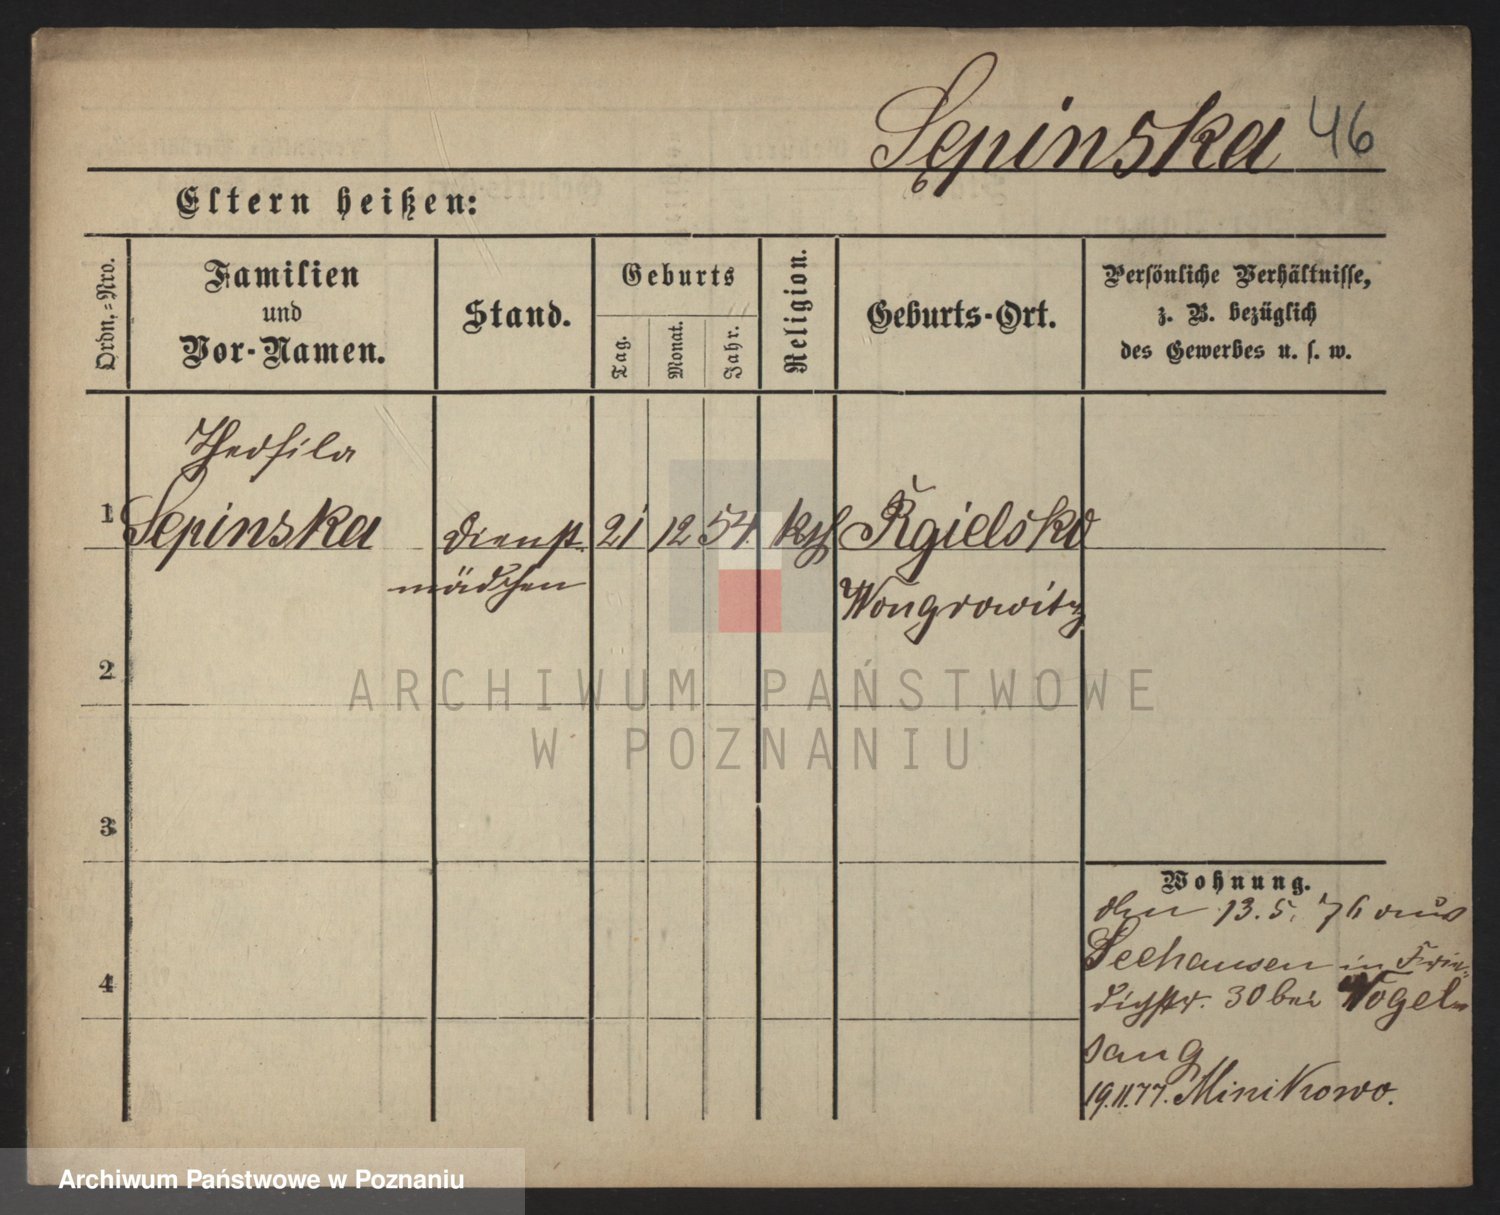 Sępinska 46
Eltern heißen:
Ordn.=Nro.
Familien
und
Vor-Namen.
Stand.
Geburts
Tag.
Monat.
Jahr.
Religion.
Geburts-Ort.
Persönliche Verhältnisse,
z. B. bezüglich
des Gewerbes u. s. w.
Theofila
1 Sepinska Dienst- 21 12 54 kth
mädchen
Wongrowitz
2
3
4
Wohnung.
den 13.5.76 aus
Seehausen in Frie-
drichstr. 30 bei Vogel-
sang
19.11.77. Minikowo.
ARCHIWUM PAŃSTWOWE
W POZNANIU
Archiwum Państwowe w Poznaniu